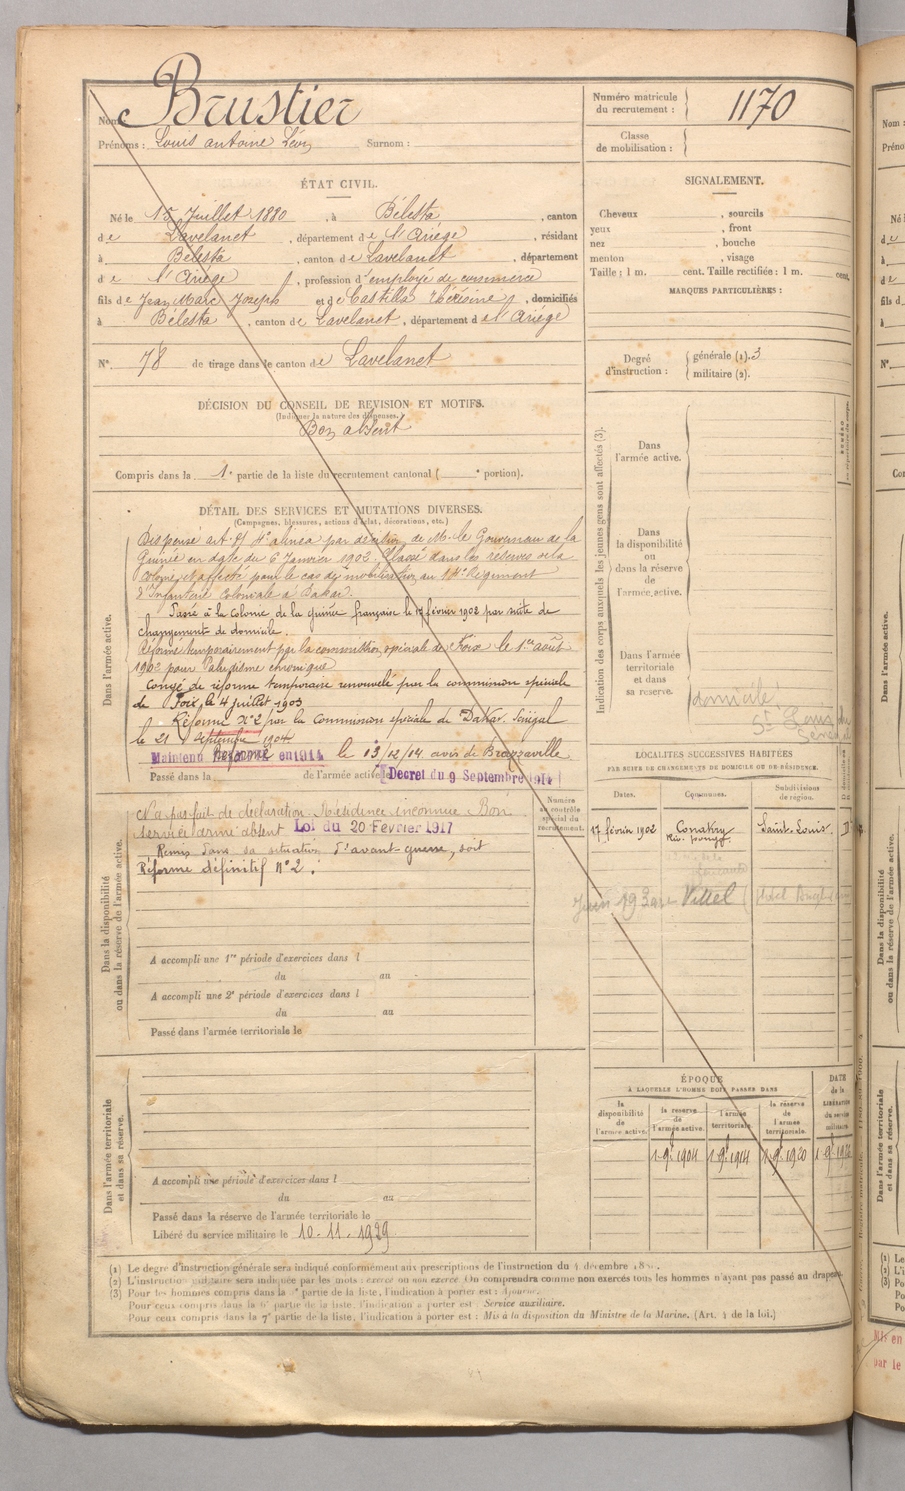 Nom : Brustier
Prénoms : Louis antoine Léon Surnom :
Numéro matricule du recrutement : 1170
Classe de mobilisation :
ÉTAT CIVIL.
Né le 15 Juillet 1880, à Bélesta, canton
de Lavelanet, département de l'Ariège, résidant
à Bélesta, canton de Lavelanet, département
de l'Ariège, profession d'employé de commerce
fils de Jean Marc Joseph et de Castilla, domiciliés
à Bélesta, canton de Lavelanet, département de l'Ariège
N° 78 de tirage dans le canton de Lavelanet
SIGNALEMENT.
Cheveux , sourcils
yeux , front
nez , bouche
menton , visage
Taille : 1 m. cent. Taille rectifiée : 1 m. cent.
MARQUES PARTICULIÈRES :
Degré d'instruction : générale (1). 3
militaire (2).
DÉCISION DU CONSEIL DE REVISION ET MOTIFS.
(Indiquer la nature des dispenses.)
Bon absent
Compris dans la 1e partie de la liste du recrutement cantonal ( e portion).
DÉTAIL DES SERVICES ET MUTATIONS DIVERSES.
(Campagnes, blessures, actions d'éclat, décorations, etc.)
Dans l'armée active.
Dispensé art. 4e alinéa par décision de M. le Gouverneur de la
Guinée en date du 6 Janvier 1902. Classé dans les réserves de la
colonie et affecté pour le cas de mobilisation au Régiment
d'Infanterie Coloniale à Dakar.
Passé à la Colonie de la guinée française le 17 février 1902 par suite de
changement de domicile.
Réformé temporairement par la commission spéciale de Foix le 1er août
1902 pour Paludisme chronique
Congé de réforme temporaire renouvelé par la commission spéciale
de Foix le 4 juillet 1903
Réformé N°2 par la Commission spéciale de Dakar Sénégal
le 21 septembre 1904.
Maintenu Réformé en 1914 le 13/12/14 avis de Brazzaville
Passé dans la de l'armée active le Decret du 9 Septembre 1914
Dans la disponibilité ou dans la réserve de l'armée active.
N'a pas fait de déclaration Résidence inconnue Bon
service armé absent Loi du 20 Février 1917
Remis dans sa situation d'avant-guerre, soit
Réforme définitif N°2.
A accompli une 1re période d'exercices dans l
du au
A accompli une 2e période d'exercices dans l
du au
Passé dans l'armée territoriale le
Dans l'armée territoriale et dans sa réserve.
A accompli une période d'exercices dans l
du au
Passé dans la réserve de l'armée territoriale le
Libéré du service militaire le 10.11.1929
Numéro au contrôle spécial du recrutement.
Indication des corps auxquels les jeunes gens sont affectés (3).
Dans l'armée active.
Dans la disponibilité ou dans la réserve de l'armée active.
Dans l'armée territoriale et dans sa réserve.
domicile
St Louis du
Sénégal
LOCALITÉS SUCCESSIVES HABITÉES
PAR SUITE DE CHANGEMENTS DE DOMICILE OU DE RÉSIDENCE.
Dates. Communes. Subdivisions de région.
17 février 1902 Conakry Saint-Louis D
Vittel
ÉPOQUE
À LAQUELLE L'HOMME DOIT PASSER DANS
la disponibilité de l'armée active.
la réserve de l'armée active.
l'armée territoriale.
la réserve de l'armée territoriale.
DATE de la LIBÉRATION du service militaire.
1-9bre 1904 1-9bre 1914 1-9bre 1920
(1) Le degré d'instruction générale sera indiqué conformément aux prescriptions de l'instruction du 4 décembre
(2) L'instruction militaire sera indiquée par les mots : exercé ou non exercé. On comprendra comme non exercés tous les hommes n'ayant pas passé au drapeau.
(3) Pour les hommes compris dans la partie de la liste, l'indication à porter est : Ajourné.
Pour ceux compris dans la 6e partie de la liste, l'indication à porter est : Service auxiliaire.
Pour ceux compris dans la 7e partie de la liste, l'indication à porter est : Mis à la disposition du Ministre de la Marine. (Art. 4 de la loi.)